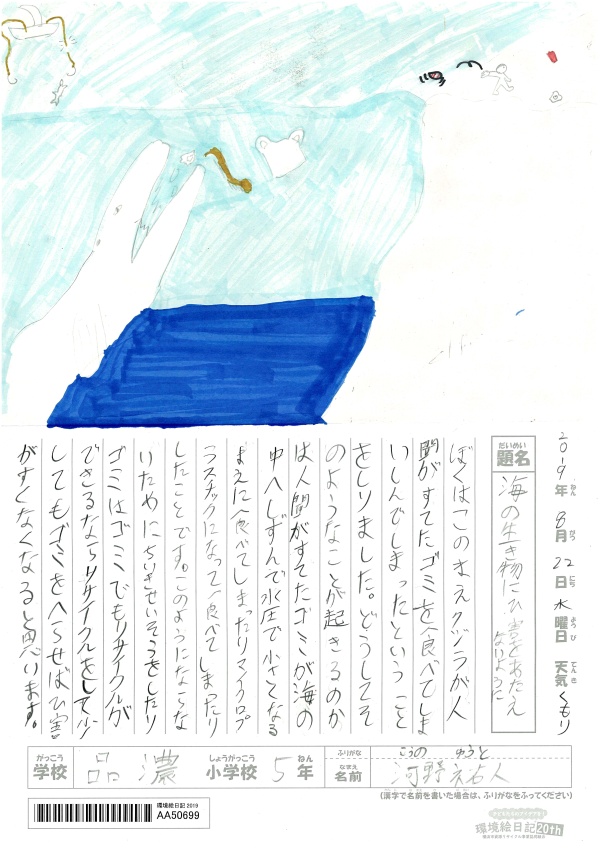 2019年 8月 22日 水曜日 天気 くもり
ねん がつ にち ようび てんき
だいめい
題名
海の生き物にひ害をあたえ
ないように
ぼくはこのまえクヅラが人
間がすてたゴミを食べてしま
いしんでしまったということ
をしりました。どうしてそ
のようなことが起きるのか
は人間がすてたゴミが海の
中へしずんで水圧で小さくなる
まえに食べてしまったりマイクロプ
ラスチックになって食べてしまったり
したことです。このようにならな
いためにちいきせいそうをしたり
ゴミはゴミでもリサイクルが
できるならリサイクルをして少
してもゴミをへらせばひ害
がすくなくなると思います。
がっこう
学校
品濃
しょうがっこう
小学校
5年
ねん
ふりがな
こうの ゆうと
なまえ
名前
河野祐人
(漢字で名前を書いた場合は、ふりがなをふってください)
環境絵日記 2019
AA50699
環境絵日記20th